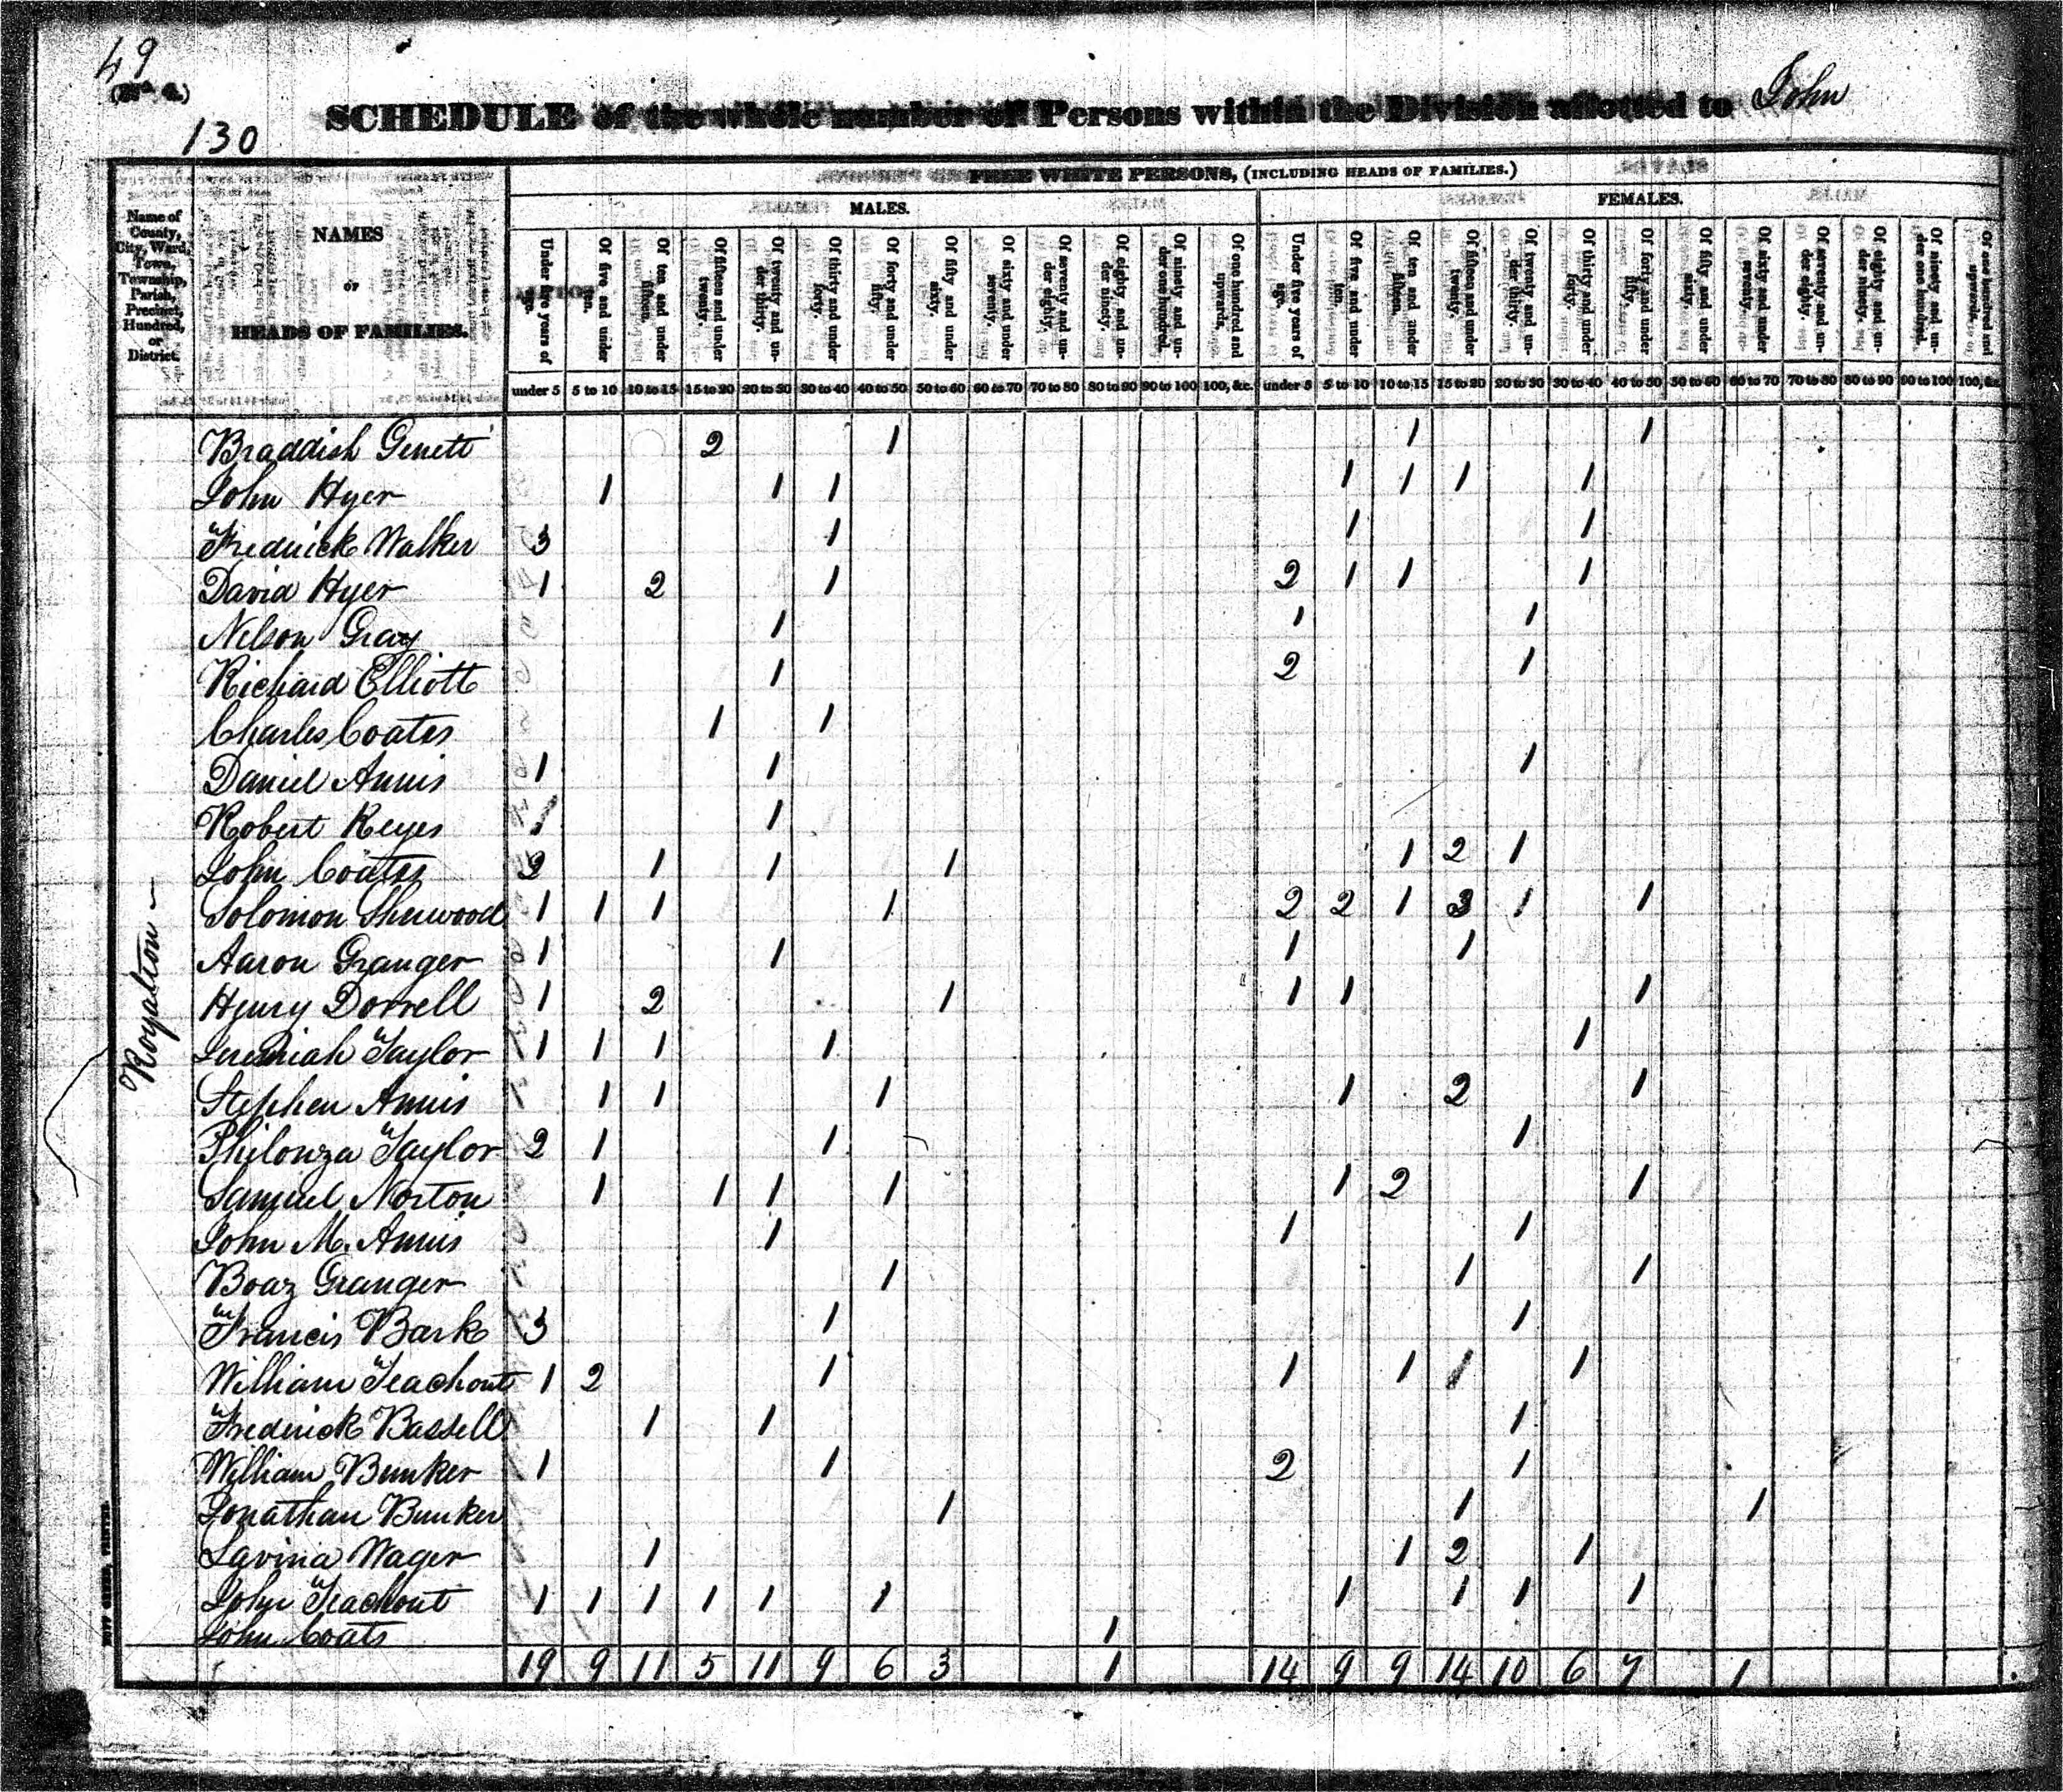 49
(No. 4.)
130
SCHEDULE of the whole number of Persons within the Division allotted to John
FREE WHITE PERSONS, (INCLUDING HEADS OF FAMILIES.)
MALES. FEMALES.
Name of County, City, Ward, Town, Township, Parish, Precinct, Hundred, or District.
NAMES
OF
HEADS OF FAMILIES.
Under five years of age. Of five and under ten. Of ten and under fifteen. Of fifteen and under twenty. Of twenty and under thirty. Of thirty and under forty. Of forty and under fifty. Of fifty and under sixty. Of sixty and under seventy. Of seventy and under eighty. Of eighty and under ninety. Of ninety and under one hundred. Of one hundred and upwards. Under five years of age. Of five and under ten. Of ten and under fifteen. Of fifteen and under twenty. Of twenty and under thirty. Of thirty and under forty. Of forty and under fifty. Of fifty and under sixty. Of sixty and under seventy. Of seventy and under eighty. Of eighty and under ninety. Of ninety and under one hundred. Of one hundred and upwards.
under 5 5 to 10 10 to 15 15 to 20 20 to 30 30 to 40 40 to 50 50 to 60 60 to 70 70 to 80 80 to 90 90 to 100 100, &c. under 5 5 to 10 10 to 15 15 to 20 20 to 30 30 to 40 40 to 50 50 to 60 60 to 70 70 to 80 80 to 90 90 to 100 100, &c.
Royalton
Braddish Genett 2 1 1 1
John Hyer 1 1 1 1 1 1 1
Frederick Walker 3 1 1 1
David Hyer 1 2 1 2 1 1 1
Nelson Gray 1 1 1
Richard Elliott 1 2 1
Charles Coates 1 1
Daniel Annis 1 1 1
Robert Keyes 1 1
John Coates 2 1 1 1 1 2 1
Solomon Sherwood 1 1 1 1 2 2 1 3 1 1
Aaron Granger 1 1 1 1
Henry Dorrell 1 2 1 1 1 1
Jeremiah Taylor 1 1 1 1 1
Stephen Annis 1 1 1 1 2 1
Philonza Taylor 2 1 1 1
Samuel Norton 1 1 1 1 1 2 1
John M. Annis 1 1 1
Boaz Granger 1 1 1
Francis Bark 3 1 1
William Teachout 1 2 1 1 1 1 1
Frederick Bassell 1 1 1
William Bunker 1 1 2 1
Jonathan Bunker 1 1 1
Lavina Wager 1 1 2 1
John Teachout 1 1 1 1 1 1 1 1 1 1
John Coats 1
19 9 11 5 11 9 6 3 1 14 9 9 14 10 6 7 1